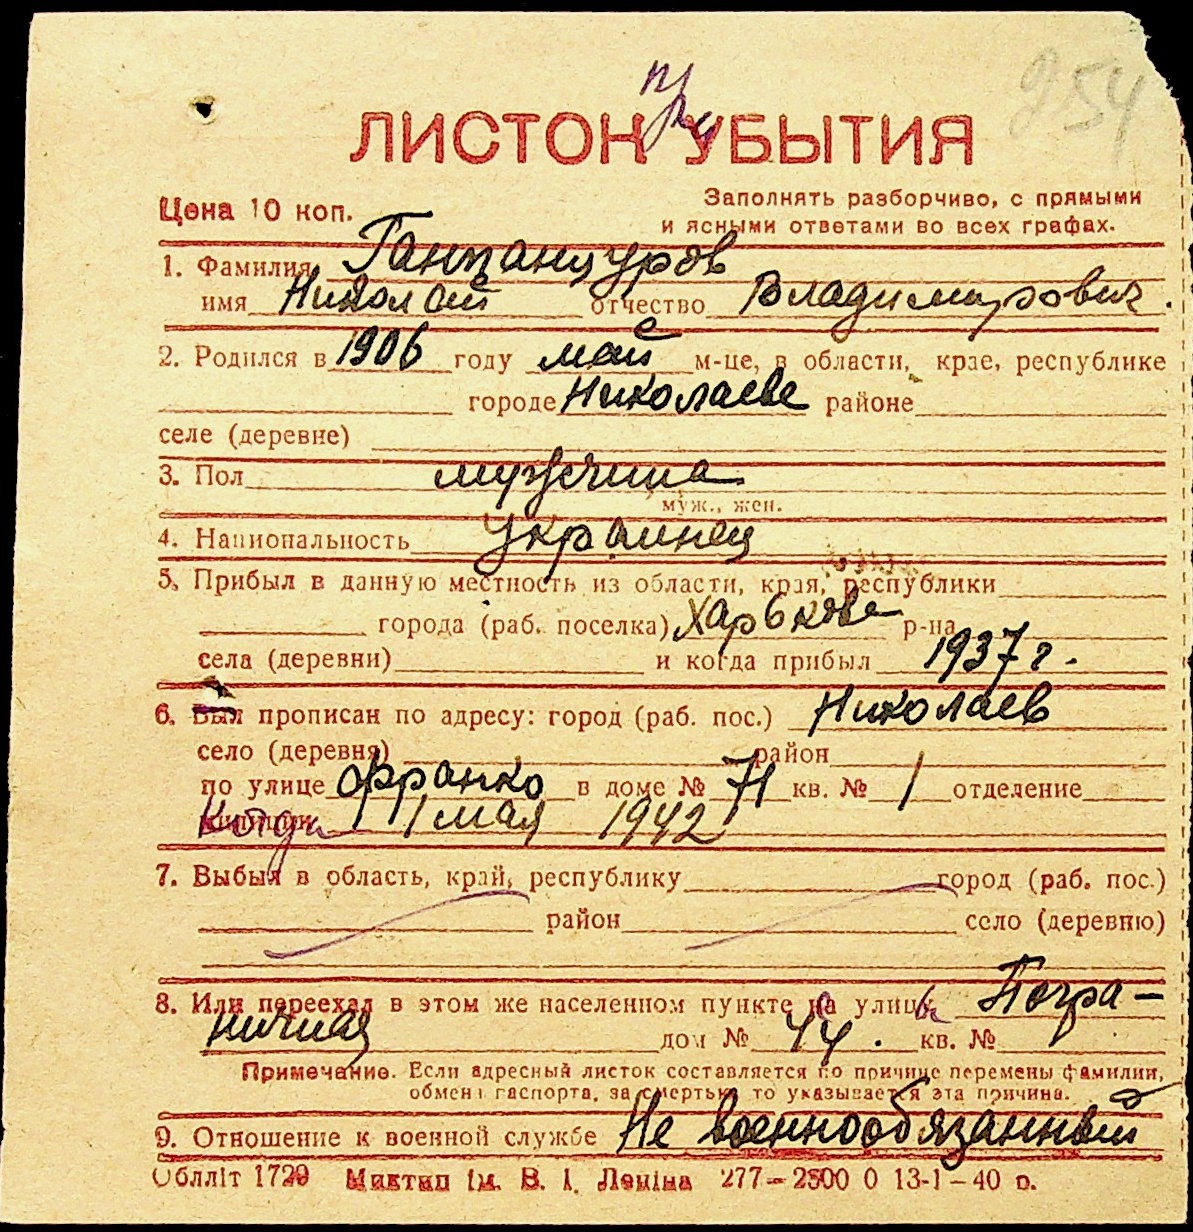 254
ЛИСТОК УБЫТИЯ
Цена 10 коп.
Заполнять разборчиво, с прямыми
и ясными ответами во всех графах.
1. Фамилия Ганпанцуров
имя Николай отчество Владимирович.
2. Родился в 1906 году май м-це, в области, крае, республике
городе Николаеве районе
селе (деревне)
3. Пол мужчина
муж., жен.
4. Национальность Украинец
5. Прибыл в данную местность из области, края, республики
города (раб. поселка) Харькова р-на
села (деревни) и когда прибыл 1937 г.
6. Был прописан по адресу: город (раб. пос.) Николаев
село (деревня) район
по улице Франко в доме № 71 кв. № 1 отделение
Когда 1 мая 1942
7. Выбыл в область, край, республику город (раб. пос.)
район село (деревню)
8. Или переехал в этом же населенном пункте улиц Погра-
ничная дом № 44. кв. №
Примечание. Если адресный листок составляется по причине перемены фамилии,
обмена паспорта, за смертью, то указывается эта причина.
9. Отношение к военной службе Не военнообязанный
Облліт 1729 Миктип ім. В. І. Леніна 277-2500 0 13-1-40 р.